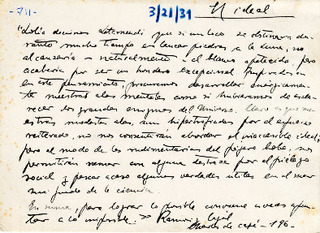 -711-
3/21/31
El ideal
que si un loco se obstinara du-
rante mucho tiempo en lanzar piedras a la luna, no
alcanzaría naturalmente el blanco apetecido, pero
acabaría por ser un hondero excepcional
en este pensamiento procuremos desarrollar
las nuestras mentales como si hubiéramos de
los grandes enigmas del Universo. Claro es que
modestas alas, aun hipertrofiadas por el esfuerzo
reiterado, no nos consentirán abordar el inaccesible ideal;
pero al modo de las rudimentarias del pájaro bobo, nos
permitirán remar con alguna destreza por el piélago
social y pescar acaso algunas verdades útiles en el mar
sin fondo de la ciencia.
En suma, para lograr lo posible conviene
a lo imposible. » Ramón y Cajal
Charlas de café - 196.-